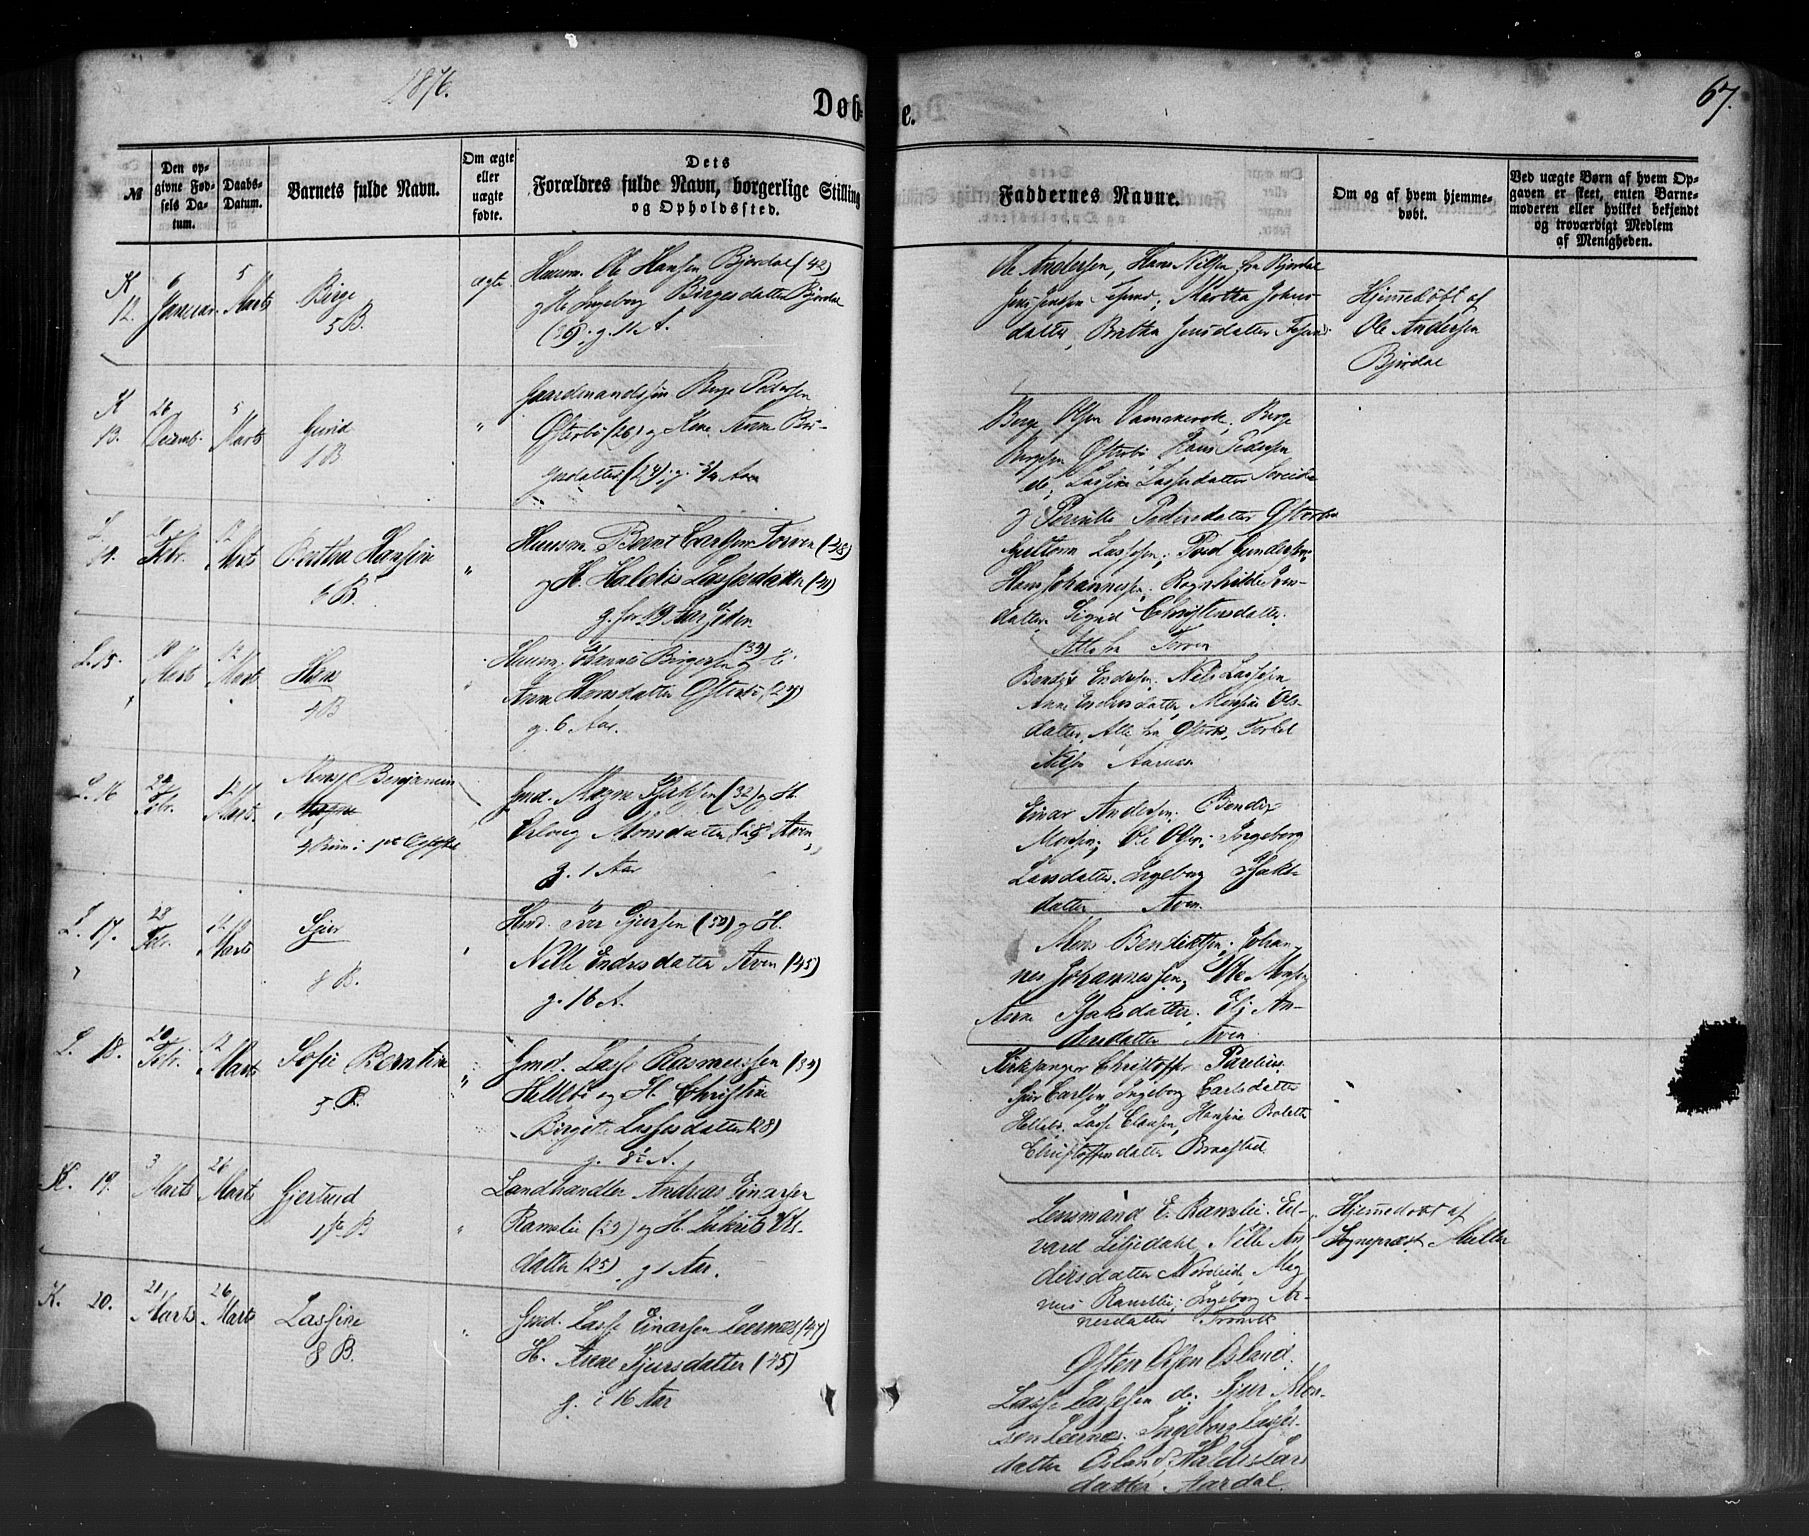 1876.
67.
Døb-
e.
№
Den op-
givne Fød-
sels Da-
tum.
Daabs-
Datum.
Barnets fulde Navn.
Om ægte
eller
uægte
fødte.
Dets
Forældres fulde Navn, borgerlige Stilling
og Opholdssted.
Faddernes Navne.
Om og af hvem hjemme-
døbt.
Ved uægte Børn af hvem Op-
gaven er skeet, enten Barne-
moderen eller hvilket bekjendt
og troværdigt Medlem
af Menigheden.
K
12.
6
Januar
5
Marts
Birge
5 B.
ægte
Huusm. Ole Hansen Bjordal (42)
og H. Ingeborg Birgesdatter Bjordal
g. 12 A.
Ole Andersen, Hans Nilsen fra Bjordal
Jens Jensen Martha Johns-
datter, Bertha Jensdatter
Hjemmedøbt af
Ole Andersen
Bjordal
K
13.
26
Decemb.
5
Marts
1 B
"
Gaardmandssøn Berge Pedersen
Østerbø (26) og Kone Anne Bir-
gesdatter (24); g. 3/4 Aar
Berge Olsen Berge
Bergesen Østerbø, Hans Pedersen
do, Lassine Lassesdatter
og Pernille Pedersdatter Østerbø
L.
14.
Febr.
12
Marts
Bertha Hansine
6 B.
"
Huusm. Bernt Carlsen Torven (45)
og H. Haldis Lassesdatter (41)
g. for 19 Aar siden
Guttorm Lassesen; Gundersen;
Hans Johannessen; Ragnhilde
datter Sigrid Christensdatter.
Alle fra Torven
L. 15.
Marts
12
Marts
Hans
4 B
Huusm. Birgersen (39) og H.
Anne Hansdatter Østerbø (27)
g. 6 Aar.
Bendix Endresen. Nils Lassesen
Anne Endresdatter, Monsine Ols-
datter, Alle fra Østerbø, Torkel
Nilsen
L. 16
24
Febr.
12
Marts.
Mons Benjamin
Magne
Gmd. Mogne Sjursen (32) og H.
Monsdatter Aven
g. 1 Aar
Einar Andersen; Bendix
Monsen; Ole Olsen; Ingeborg
Larsdatter. Ingeborg
datter Aven.
L. 17.
28
Febr.
12
Marts
Sjur
8 B.
Hmd. Iver Sjursen (50) og H.
Nille Endresdatter Aven (45)
g. 16 A.
Mons Bendiktsen; Johan-
nes Johannessen; Ole Monsen
Anne datter. Eli An-
dersdatter Aven
L. 18.
29
Febr.
12
Marts
Sofie Berntine
5 B.
"
Gmd. Lasse Rasmussen (34)
Hellebø og H. Christine
Birgite Lassesdatter (28)
g. 8½ A.
Kirksanger Christoffer Parelius
Sjur Carlsen Ingeborg Carlsdatter
Hellebø. Lasse Clausen, Hansine Bolette
Christoffersdatter Braastad.
K. 19.
3
Marts
26
Marts
Gjertrud
1ste B
Landhandler Andreas Einarsen
Ramslie (29) og H. Ols-
datter (25) g 1 Aar.
Lensmand E. Ramslie. Ed-
vard Liljedahl, Nille An-
dersdatter Nordeide, Mag
nus Ramslie; Ingeborg Ar-
nesdatter
Hjemmedøbt af
Sognepræst Müller
K. 20.
21
Marts
26
Marts
Lassine
8 B.
Gmd. Lasse Einarsen Leernes (47)
H. Anne Sjursdatter (45)
g. i 16 Aar
Østen Olsen Osland.
Lasse Lassesen do. Sjur Mon-
sen Leernes. Ingeborg Lasses-
datter Osland, Haldis Lars
datter Aardal.